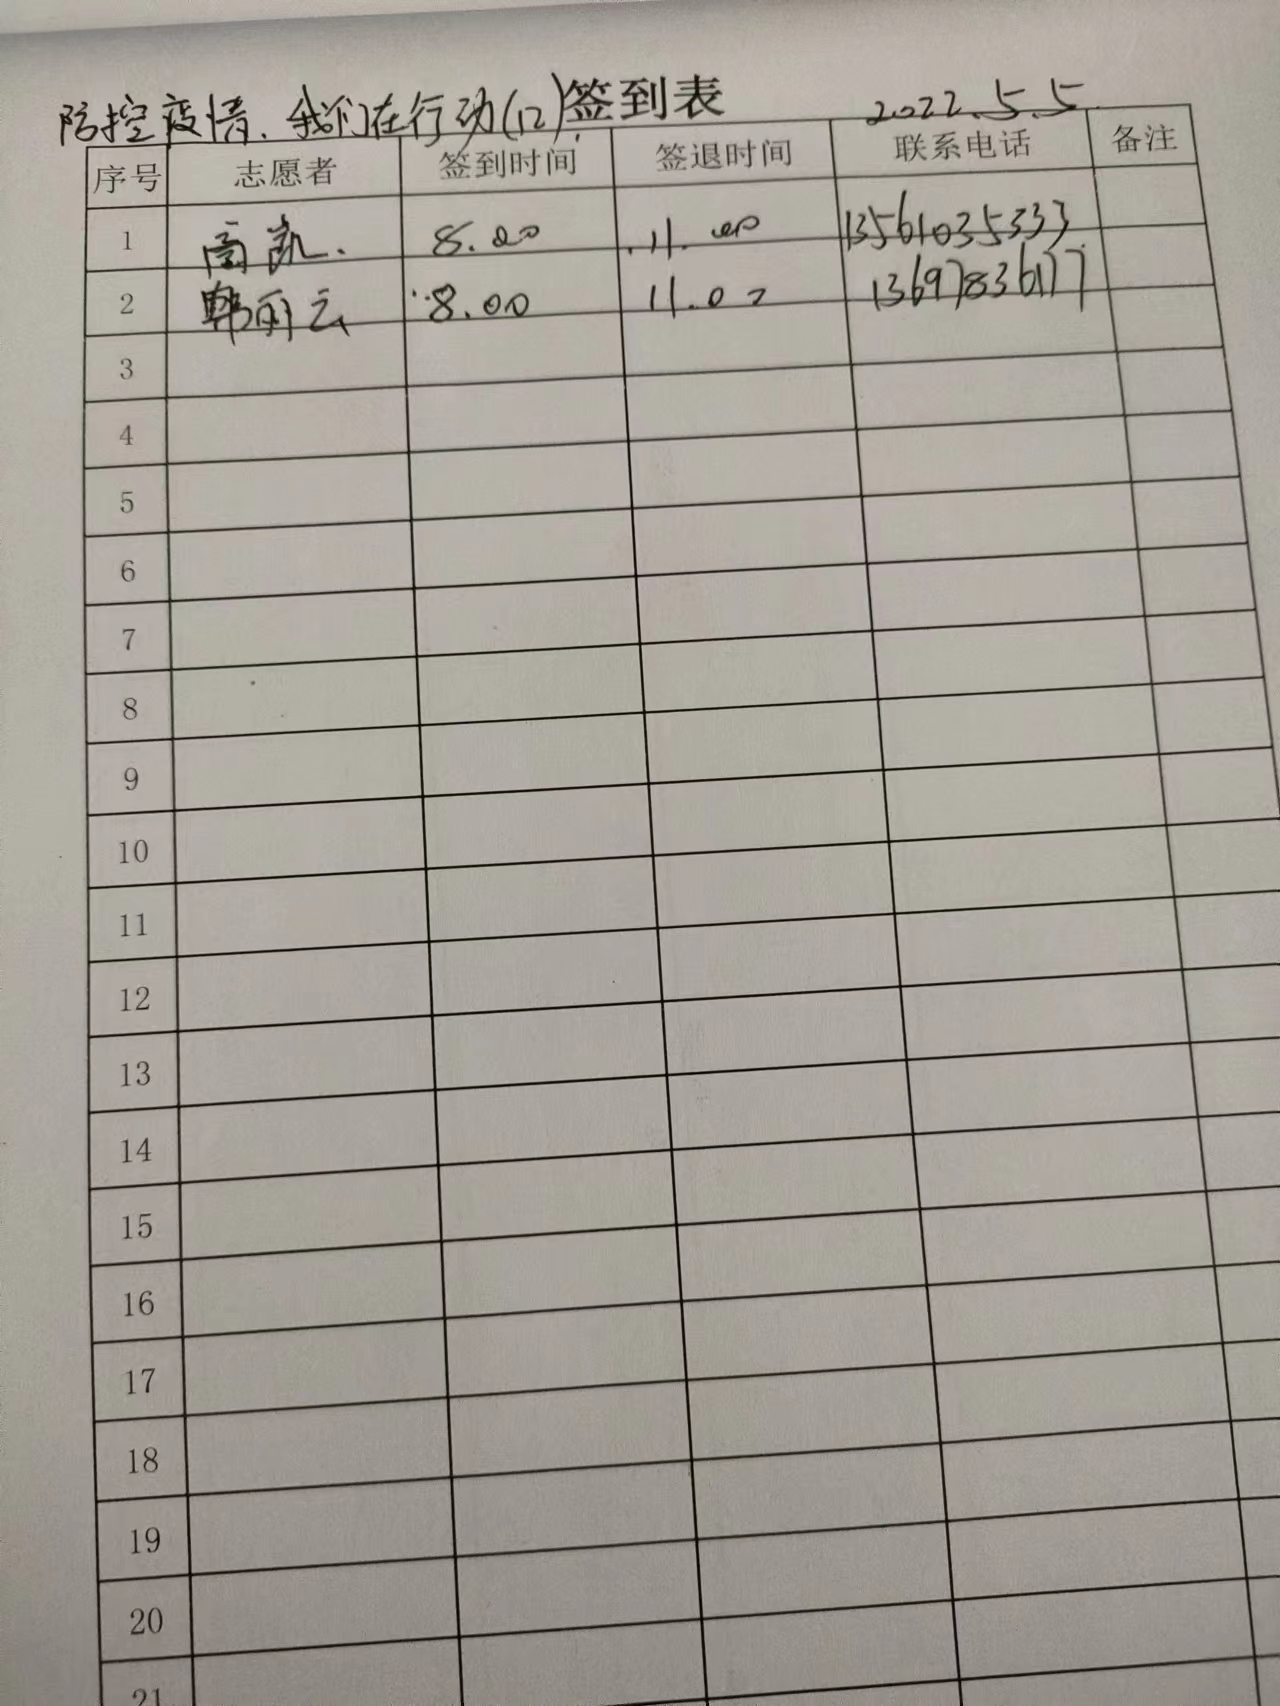 防控疫情.我们在行动(12)签到表 2022.5.5
序号 志愿者 签到时间 签退时间 联系电话 备注
1 高凯. 8.00 11.00 13561035333
2 韩丽云 8.00 11.00 13697836177
3
4
5
6
7
8
9
10
11
12
13
14
15
16
17
18
19
20
21